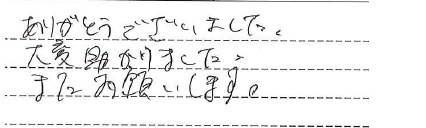 ありがとうございました。
大変助かりました。
またお願いします。